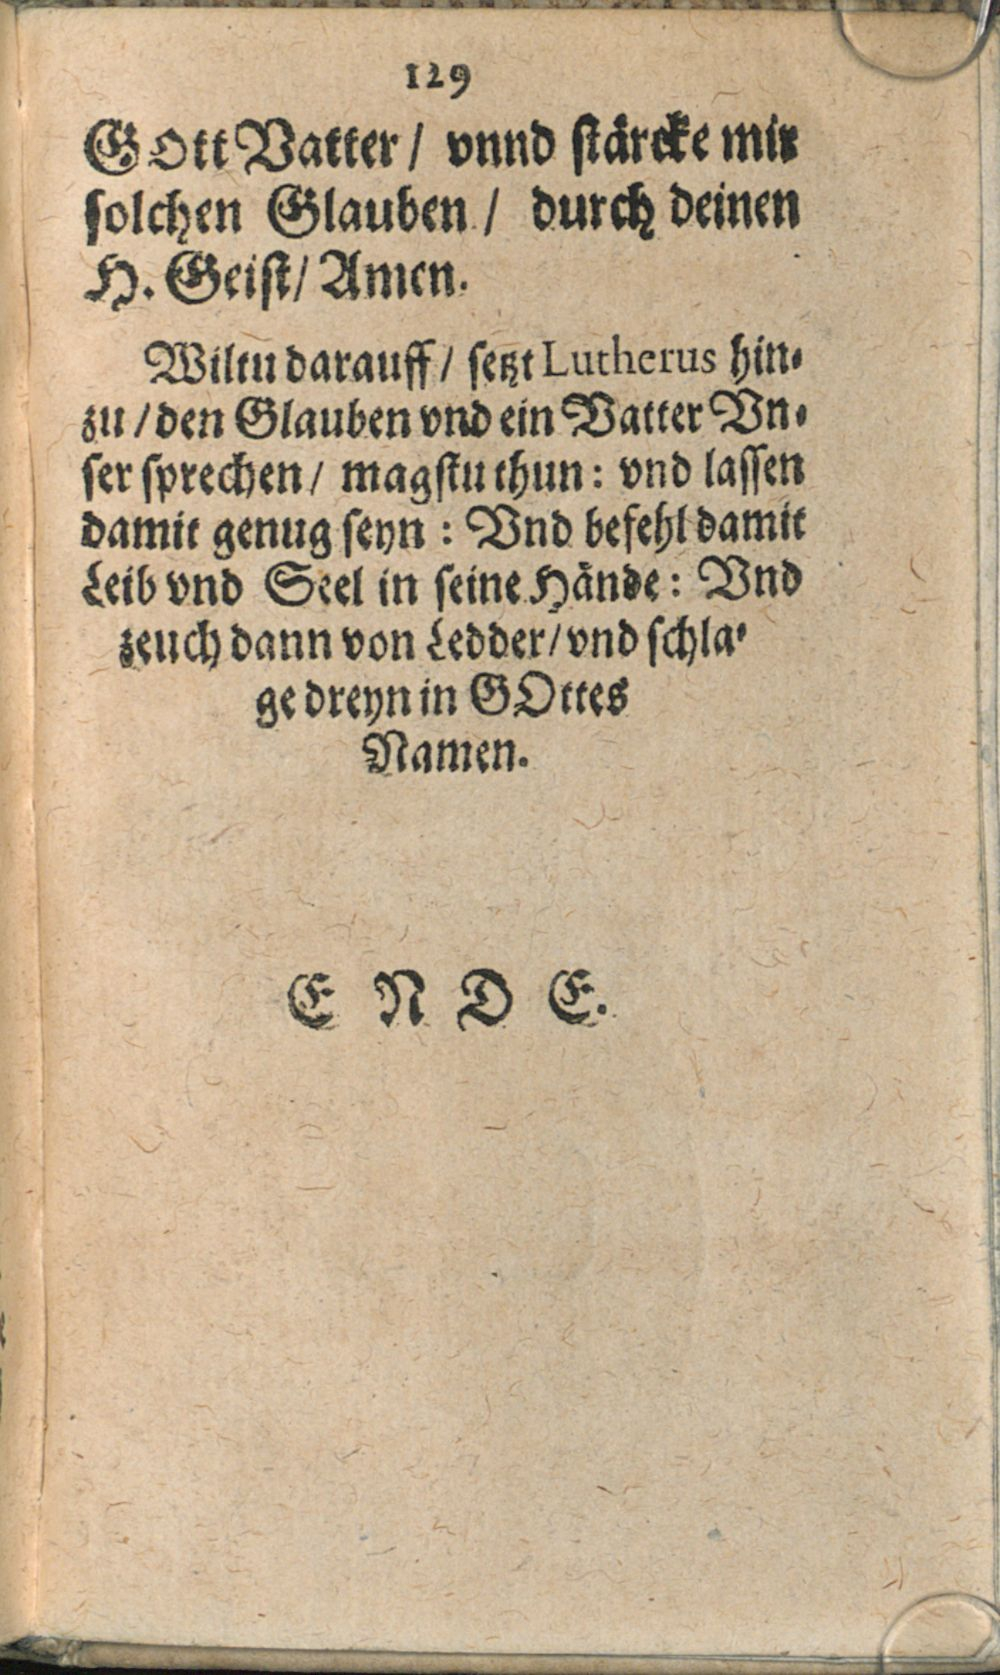 129
GOtt Vatter / vnnd stärcke mir
solchen Glauben / durch deinen
H. Geist / Amen.
Wiltu darauff / setzt Lutherus hin-
zu / den Glauben vnd ein Vatter Vn-
ser sprechen / magstu thun: vnd lassen
damit genug seyn: Vnd befehl damit
Leib vnd Seel in seine Hände: Vnd
zeuch dann von Ledder / vnd schla-
ge dreyn in GOttes
Namen.
E N D E.